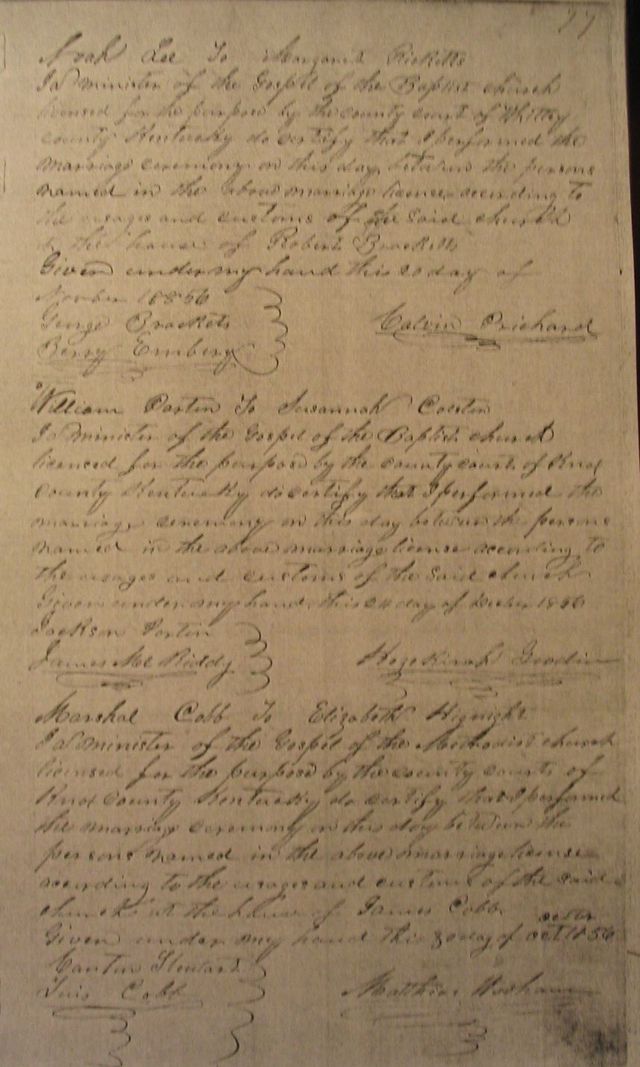 77
Noah Lee To Margaret Ricketts
I a minister of the Gospel of the Baptist church
licensed for the purpose by the county court of Whitley
county Kentucky do certify that I performed the
marriage ceremony on this day between the persons
named in the above marriage license according to
the usages and customs of the said church
the house of Robert Brocketts
Given under my hand this 20 day of
1856
George Brockets
Berry
Calvin Prichard
William Partin To Susannah
I a minister of the Gospel of the Baptist church
licenced for the purpose by the county court of Knox
county Kentucky do certify that I performed the
marriage ceremony on this day between the persons
named in the above marriage license according to
the usages and customs of the said church
Given under my hand this 24 day of 1856
Jackson Partin
James
Hezekirah Goodin
Marshal Cobb To Elizabeth
I a minister of the Gospel of the Methodist church
licenced for the purpose by the county courts of
Knox County Kentucky do certify that I performed
the marriage ceremony on this day between the
persons named in the above marriage license
according to the usages and customs of the said
church at the house of James Cobb
Given under my hand this day of oct 1856
Steward
Cobb
Matthias